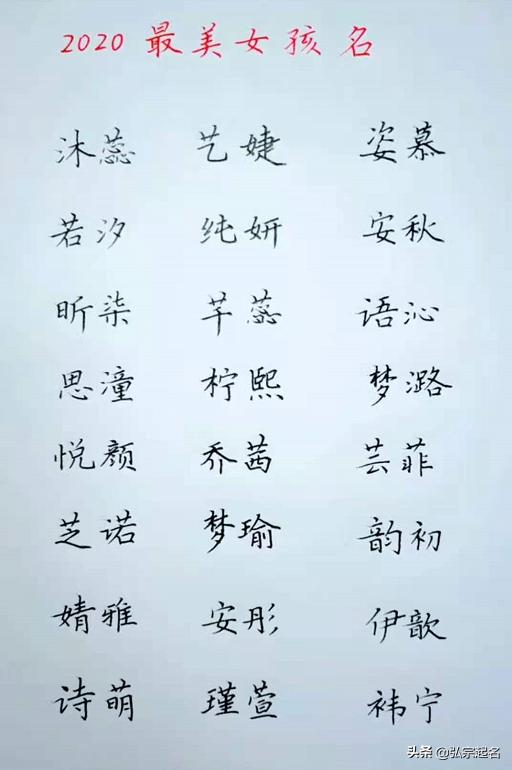 2020 最美女孩名
沐蕊 艺婕 姿慕
若汐 纯妍 安秋
昕柒 芊蕊 语沁
思潼 柠熙 梦潞
悦颜 乔茜 芸菲
芝诺 梦瑜 韵初
婧雅 安彤 伊歆
诗萌 瑾萱 祎宁
头条 @弘宗起名